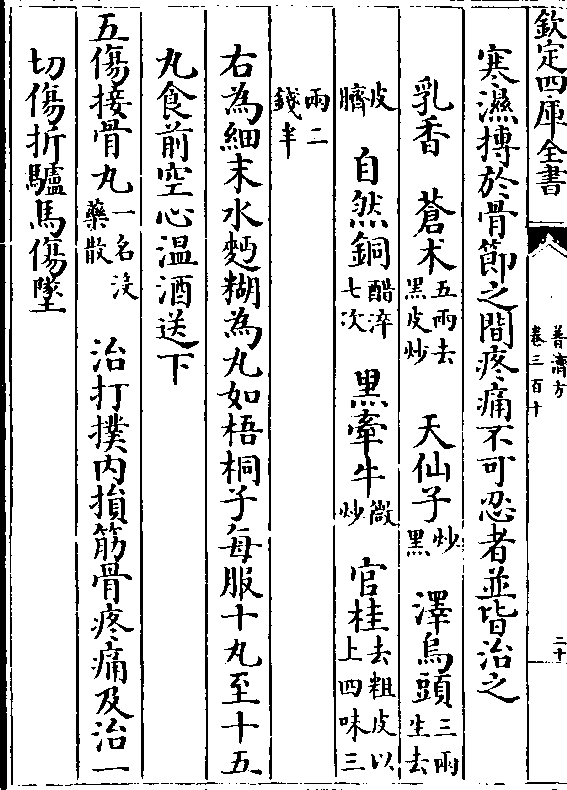 欽定四庫全書
普濟方
卷三百十
二十
寒濕摶於骨節之間疼痛不可忍者並皆治之
乳香 蒼术五兩去黑皮炒 天仙子炒黑 澤烏頭三兩生去
皮臍 自然銅醋淬七次 黒牽牛微炒 官桂去粗皮以上四味三
兩二錢半
右為細末水麪糊為丸如梧桐子每服十丸至十五
丸食前空心温酒送下
五傷接骨丸一名沒藥散 治打撲内損筋骨疼痛及治一
切傷折驢馬傷墜